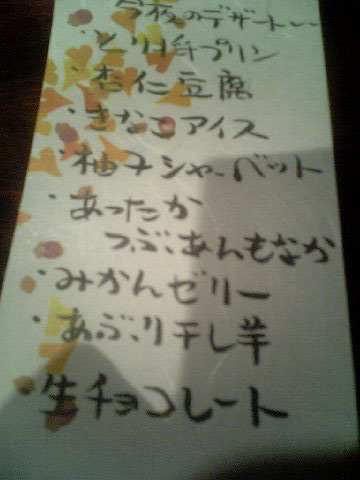 今夜のデザート…
・とり将プリン
・杏仁豆腐
・きなこアイス
・柚子シャーベット
・あったか
つぶあんもなか
・みかんゼリー
・あぶり干し芋
・生チョコレート